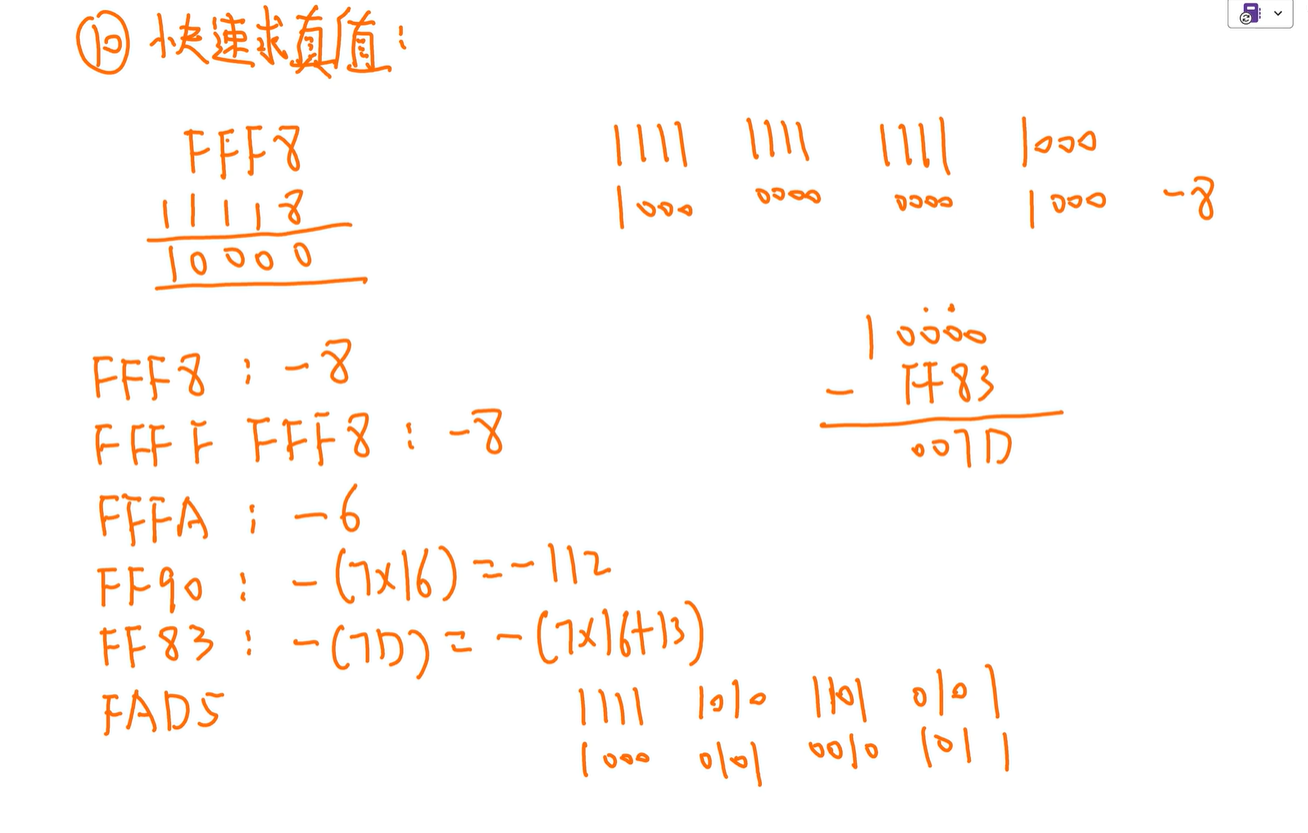 ⑩ 快速求真值:
FFF8
11118
10000
1111 1111 1111 1000
1000 0000 0000 1000 -8
10000
- FF83
007D
FFF8 : -8
FFFF FFF8 : -8
FFFA : -6
FF90 : -(7×16) = -112
FF83 : -(7D) = -(7×16+13)
FAD5
1111 1010 1101 0101
1000 0101 0010 1011